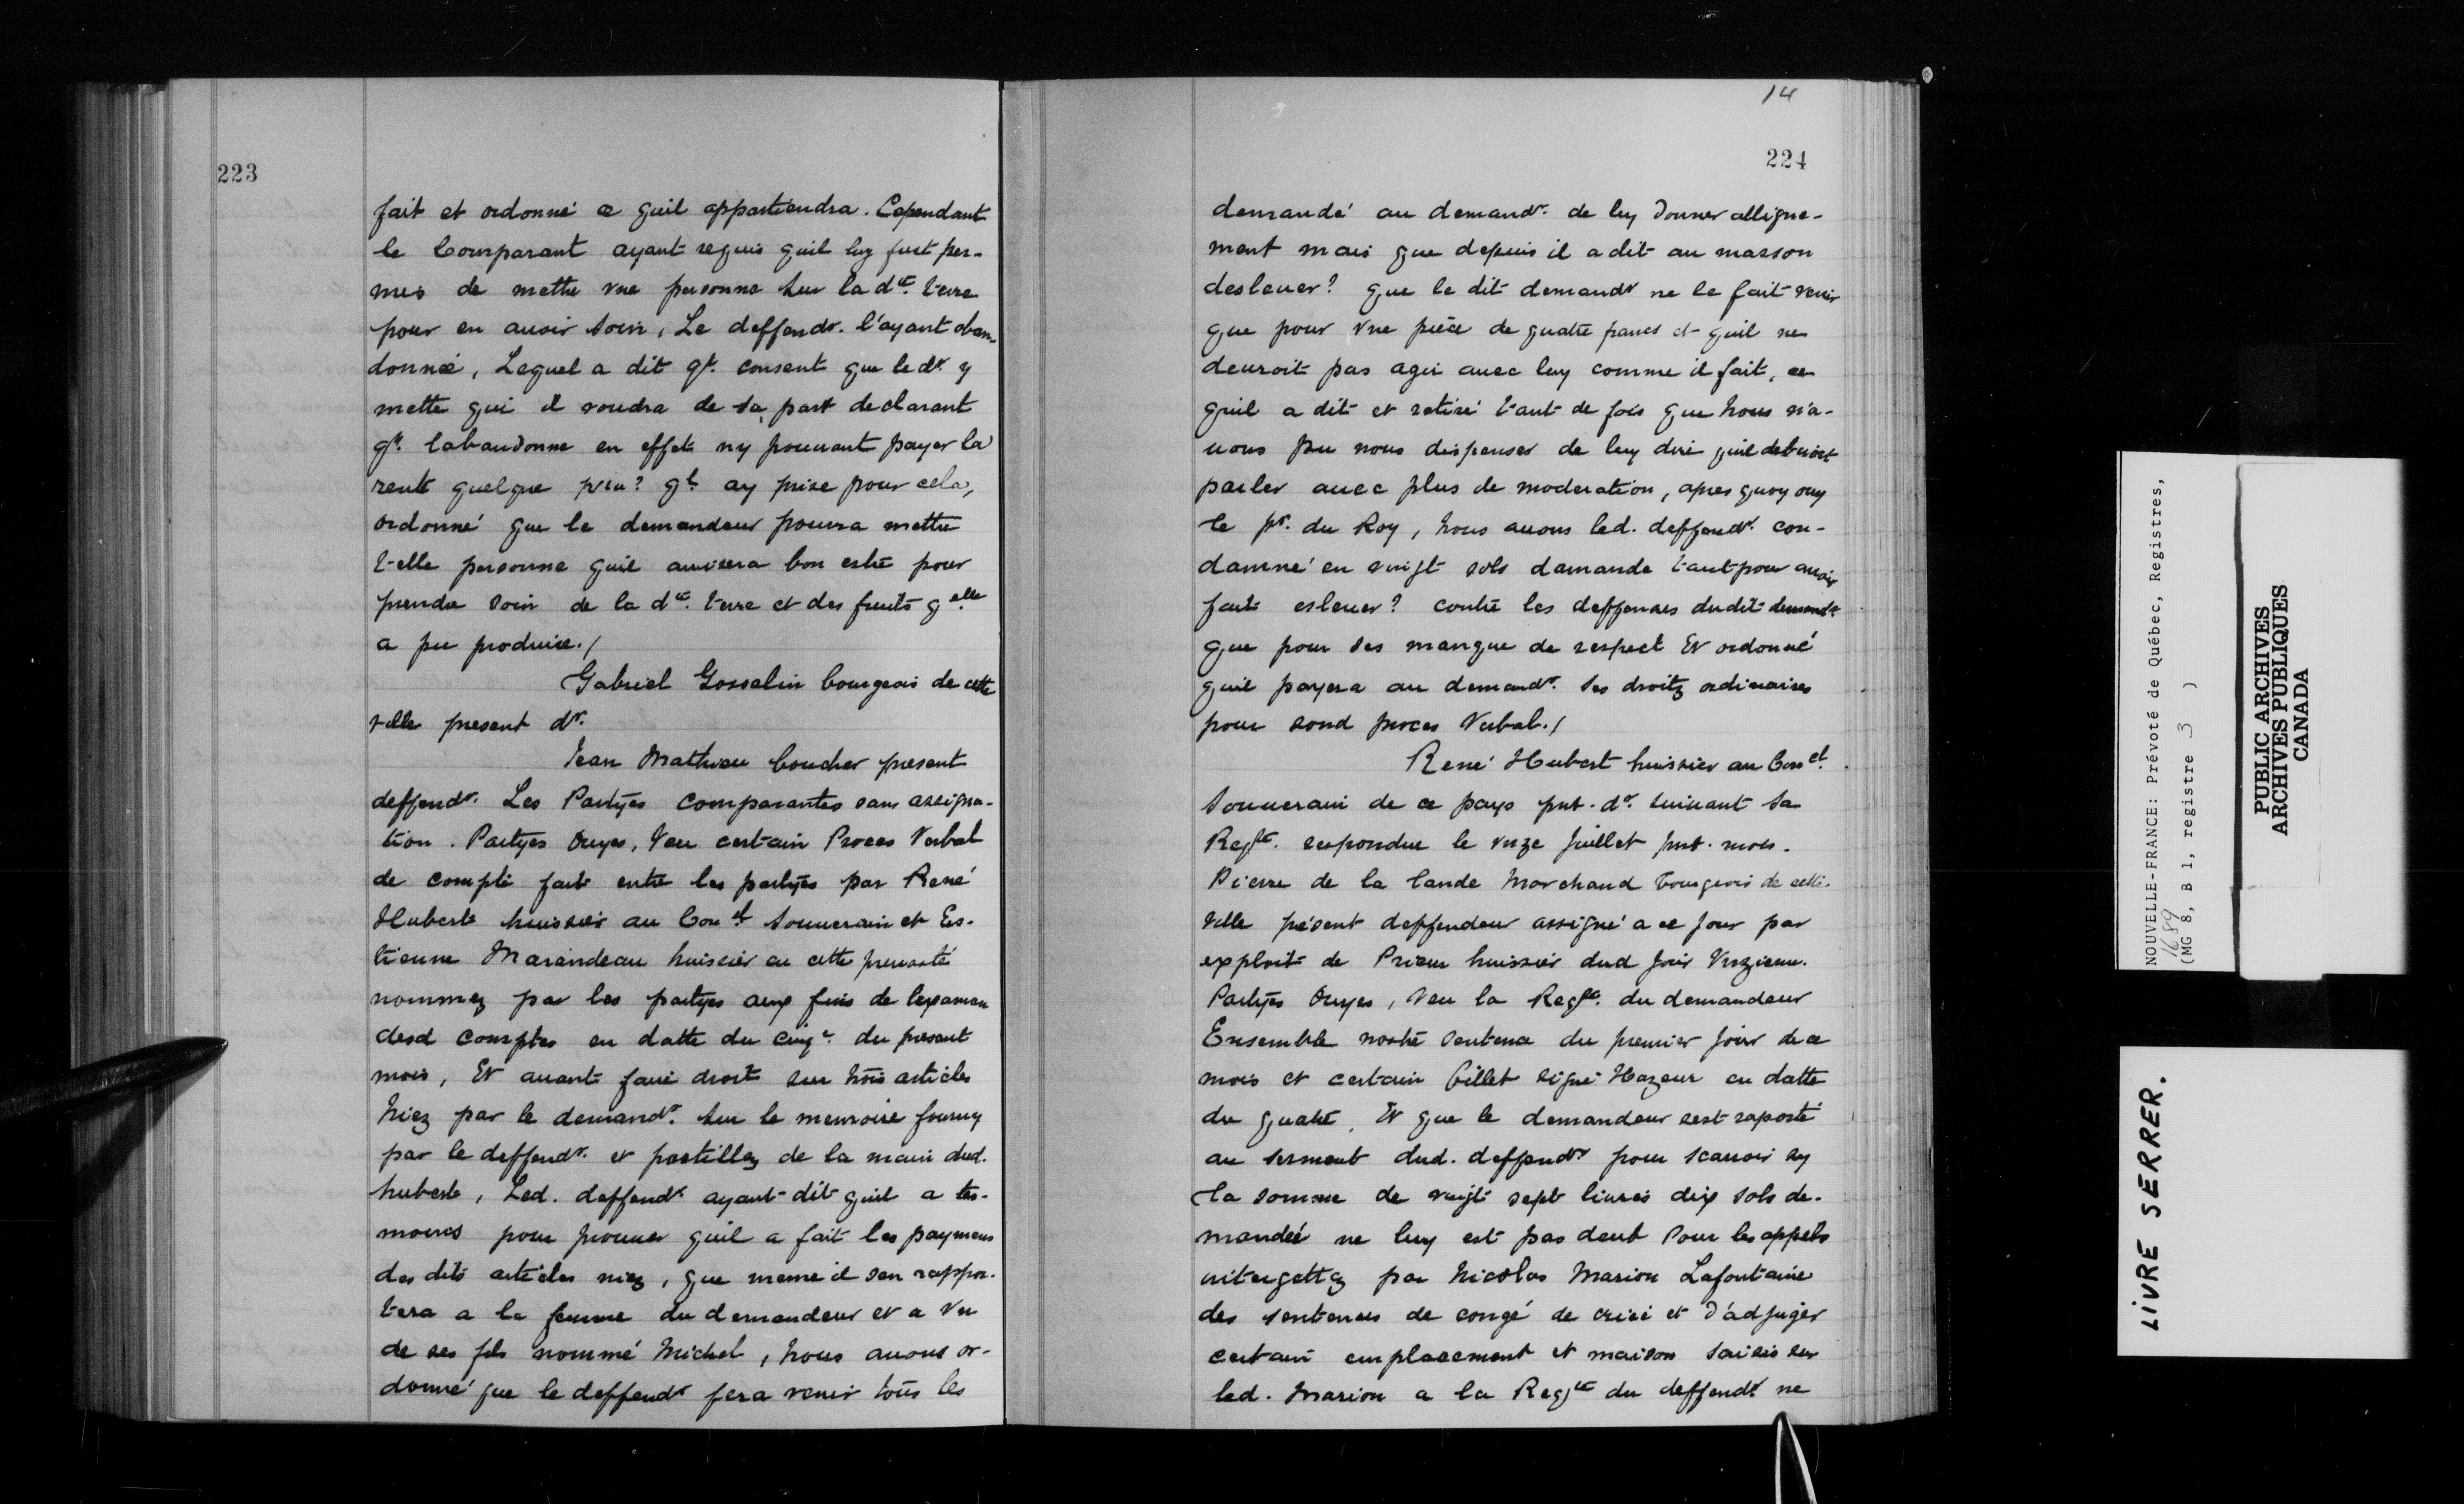 223
fait et ordonné ce quil appartiendra. Cependant
le Comparant ayant requis quil luy fust per-
mis de mettre vne personne sur la dte. terre
pour en auoir soin, Le deffendr. l'ayant aban-
donnée, Lequel a dit ql. consent que le dr. y
mette qui il voudra de sa part declarant
ql. labandonne en effet ny pouuant payer la
rente quelque peu? ql. ay prise pour cela,
ordonné que le demandeur pourra mettre
telle personne quil auisera bon estre pour
prendre soin de la dte. terre et des fruits qelle
a pu produire./
Gabriel Gosselin bourgeois de cette
ville present dr.
Jean Mathieu boucher present
deffendr. Les Partyes comparantes sans assigna-
tion. Partyes Ouyes, Veu certain Proces Verbal
de compte fait entre les partyes par René
Hubert huissier au Conel Souuerain et Es-
tienne Marandeau huissier en cette preuosté
nommez par les partyes aux fins de lexamen
desd comptes en datte du cinqe. du present
mois, Et auant faire droit sur trois articles
Niez par le demandr. sur le memoire fourny
par le deffendr. et postillez de la main dud.
hubert, Led. deffendr. ayant dit quil a tes-
moins pour prouuer quil a fait les paymens
des dits articles niez, que meme il sen rappor-
tera a la femme du demandeur et a vn
de ses fils nommé Michel, nous auons or-
donné que le deffendr fera venir tous les
14
224
demandé au demandr. de luy donner alligne-
ment mais que depuis il a dit au masson
desleuer? que le dit demandr ne le fait venir
que pour vne pièce de quatre francs et quil ne
deuroit pas agir auec luy comme il fait, ce
quil a dit et retiré tant de fois que Nous n'a-
uons pu nous dispenser de luy dire quil debuoit
parler auec plus de moderation, apres quoy ouy
le pr. du Roy, Nous auons led. deffendr. con-
damné en vingt sols damande tant pour auoir
fait esleuer? contre les deffenses dudit demandr.
que pour ses manque de respect Et ordonné
quil payera au demandr. ses droitz ordinaires
pour sond proces Verbal./
René Hubert huissier au Conel.
Souuerain de ce pays pnt. dr. suiuant sa
Reqte. respondue le vnze Juillet pnt. mois.
Pierre de la lande Marchand bourgeois de cette
ville présent deffendeur assigné a ce jour par
exploit de Prieur huissier dud jour Vnzieme.
Partyes Ouyes, Veu la Reqte. du demandeur
Ensemble nostre sentence du premier jour de ce
mois et certain billet signé Hazeur en datte
du quatre, Et que le demandeur sest raporté
au serment dud. deffendr pour scauoir sy
la somme de vingt sept liures dix sols de-
mandée ne luy est pas deub Pour les appels
intergettez par Nicolas Marion Lafontaine
des sentences de congé de criée et d'adjuger
certain emplacement et maison saisis sur
led. Marion a la Reqte du deffendr ne
NOUVELLE-FRANCE: Prévoté de Québec, Registres,
1689
(MG 8, B 1, registre 3 )
PUBLIC ARCHIVES
ARCHIVES PUBLIQUES
CANADA
LIVRE SERRER.